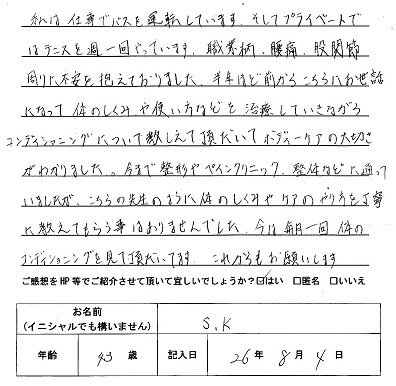 私は仕事でバスを運転しています。そしてプライベートで
はテニスを週一回やっています。職業柄、腰痛、股関節
周りに不安を抱えておりました。半年ほど前からこちらにお世話
になって体のしくみや使い方などを治療していきながら
コンディショニングについて教しえて頂だいてボディーケアの大切さ
がわかりました。今まで整形やペインクリニック、整体などに通って
いましたが、こちらの先生のように体のしくみやケアのやり方を丁寧
に教えてもらう事はありませんでした。今は毎月一回体の
コンディショニングを見て頂だいてます。これからもお願いします
ご感想をHP等でご紹介させて頂いて宜しいでしょうか?☑はい □匿名 □いいえ
お名前
(イニシャルでも構いません) S.K
年齢 43 歳 記入日 26年 8月 4日